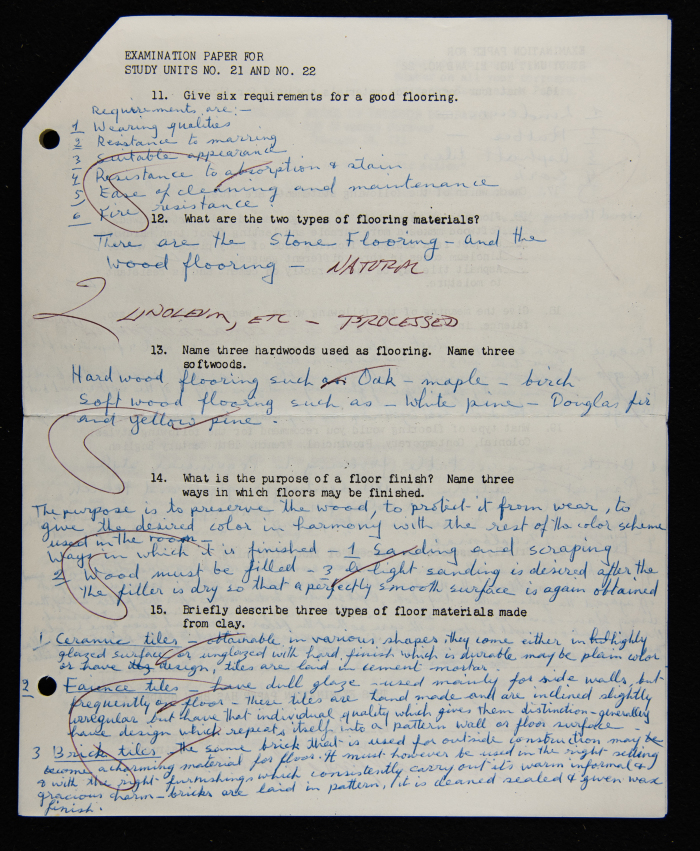 EXAMINATION PAPER FOR
STUDY UNITS NO. 21 AND NO. 22
11. Give six requirements for a good flooring.
Requirements are:-
1 Wearing qualities
2 Resistance to marring
3 Suitable appearance
4 Resistance to absorption & stain
5 Ease of cleaning and maintenance
6 Fire resistance.
12. What are the two types of flooring materials?
There are the Stone Flooring - and the
Wood flooring - NATURAL
2 LINOLEUM, ETC - PROCESSED
13. Name three hardwoods used as flooring. Name three
softwoods.
Hard wood flooring such as Oak - maple - birch
Soft wood flooring such as - White pine - Douglas fir
and yellow pine.
14. What is the purpose of a floor finish? Name three
ways in which floors may be finished.
The purpose is to preserve the wood, to protect it from wear, to
give the desired color in harmony with the rest of the color scheme
used in the room -
Ways in which it is finished - 1 Sanding and scraping
2 Wood must be filled - 3 A light sanding is desired after the
the filler is dry so that a perfectly smooth surface is again obtained
15. Briefly describe three types of floor materials made
from clay.
1 Ceramic tiles - attainable in various shapes they come either in highly
glazed surface or unglazed with hard finish which is durable may be plain color
or have design, tiles are laid in cement mortar.
2 Faience tiles - have dull glaze - used mainly for side walls, but
frequently on floor - these tiles are hand made and are inclined slightly
irregular but have that individual quality which gives them distinction - generally
have design which repeats itself into a pattern wall or floor surface -
3 Brick tiles - the same brick that is used for outside construction may be
become a charming material for floor. It must however be used in the right setting
& with the right furnishings which consistently carry out it's warm informal &
gracious charm - bricks are laid in pattern, it is cleaned sealed & given wax
finish.